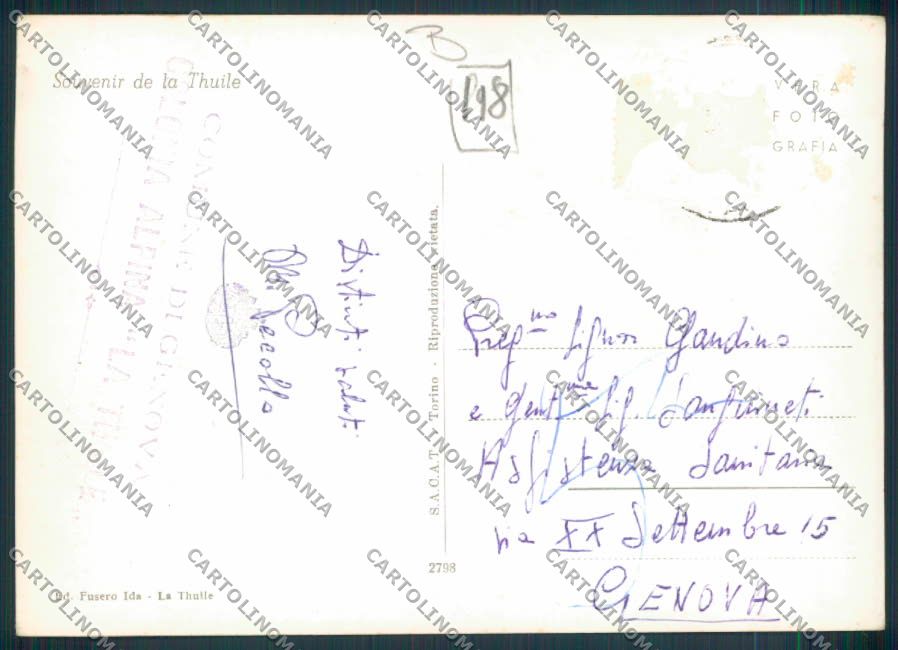 Souvenir de la Thuile
COMUNE DI GENOVA
COLONIA ALPINA "LA THUILE"
B
198
VERA
FOTO
GRAFIA
Distinti saluti
S.A.C.A.T. Torino - Riproduzione vietata.
Preg.mo Signor Gandino
e Gent.me Sig. Sanguineti
Assistenza Sanitaria
via XX Settembre 15
GENOVA
2798
Ed. Fusero Ida - La Thuile
CARTOLINOMANIA